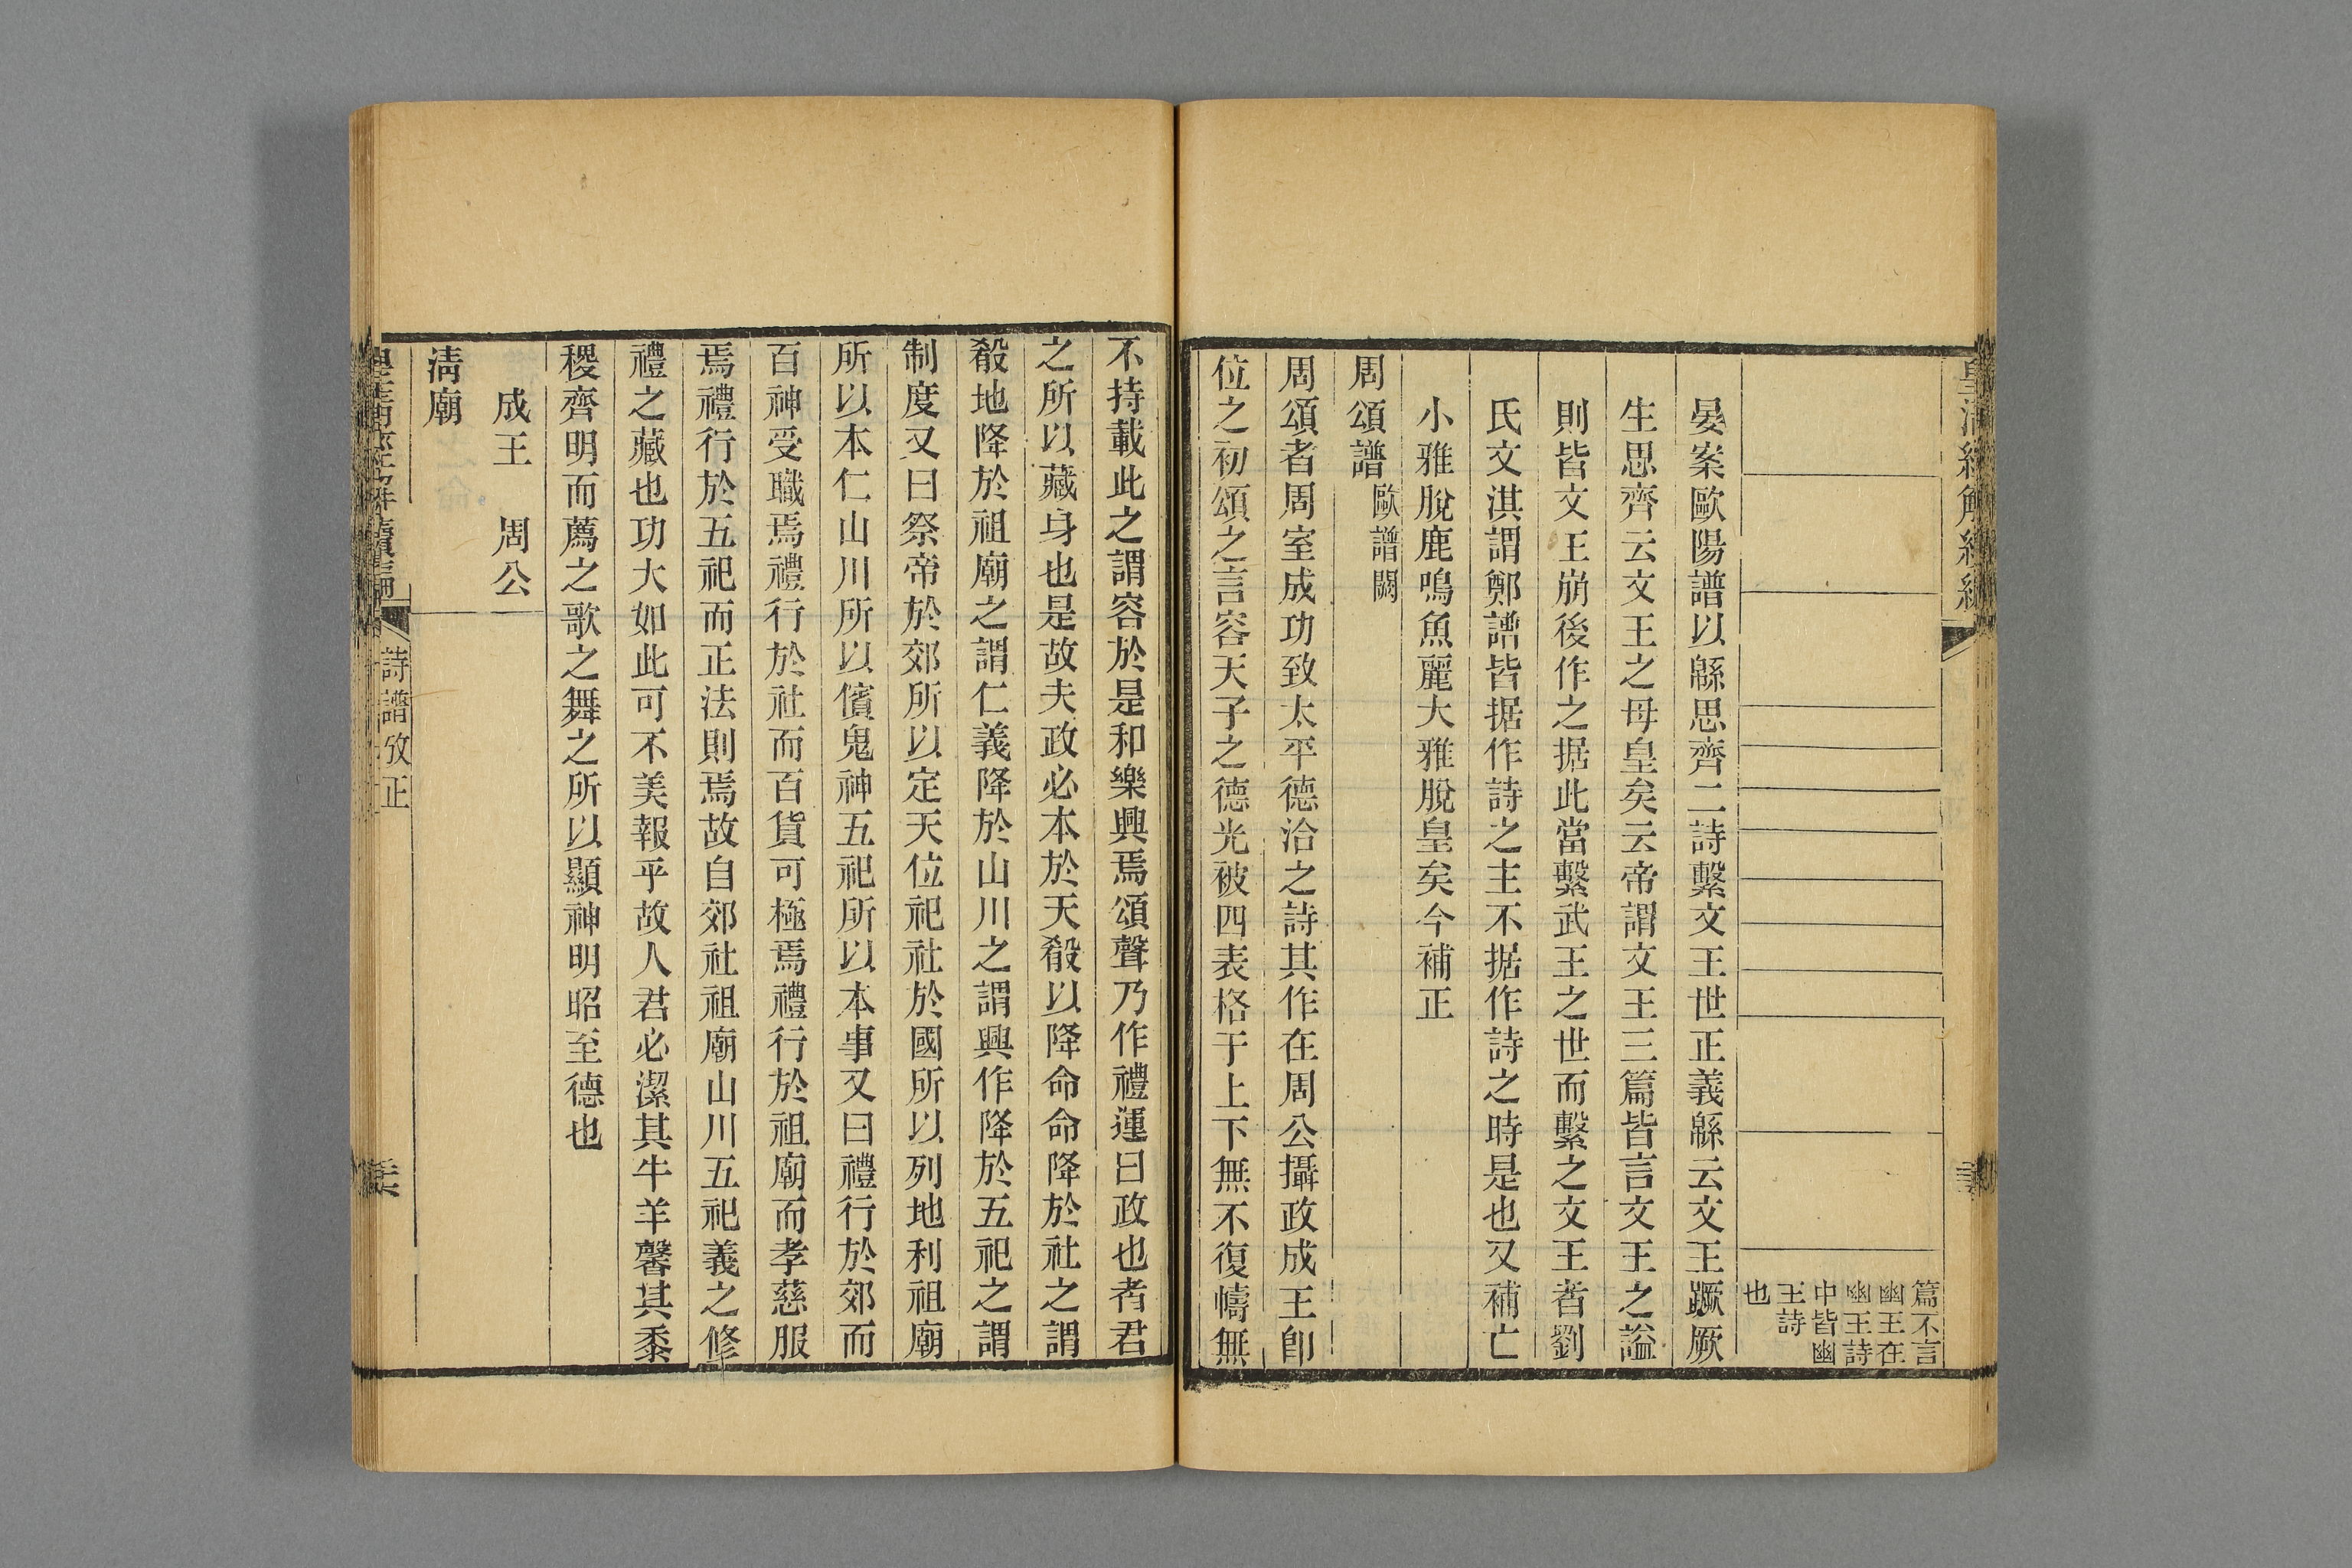 皇清經解續編
篇不言
幽王在
幽王詩
中皆幽
王詩
也
晏案歐陽譜以緜思齊二詩繫文王世正義緜云文王蹶厥
生思齊云文王之母皇矣云帝謂文王三篇皆言文王之謚
則皆文王崩後作之据此當繫武王之世而繫之文王者劉
氏文淇謂鄭譜皆据作詩之主不据作詩之時是也又補亡
小雅脫鹿鳴魚麗大雅脫皇矣今補正
周頌譜歐譜闕
周頌者周室成功致太平德洽之詩其作在周公攝政成王卽
位之初頌之言容天子之德光被四表格于上下無不復幬無
不持載此之謂容於是和樂興焉頌聲乃作禮運曰政也者君
之所以藏身也是故夫政必本於天殽以降命命降於社之謂
殽地降於祖廟之謂仁義降於山川之謂興作降於五祀之謂
制度又曰祭帝於郊所以定天位祀社於國所以列地利祖廟
所以本仁山川所以儐鬼神五祀所以本事又曰禮行於郊而
百神受職焉禮行於社而百貨可極焉禮行於祖廟而孝慈服
焉禮行於五祀而正法則焉故自郊社祖廟山川五祀義之修
禮之藏也功大如此可不美報乎故人君必潔其牛羊馨其黍
稷齊明而薦之歌之舞之所以顯神明昭至德也
成王　周公
淸廟
詩譜攷正